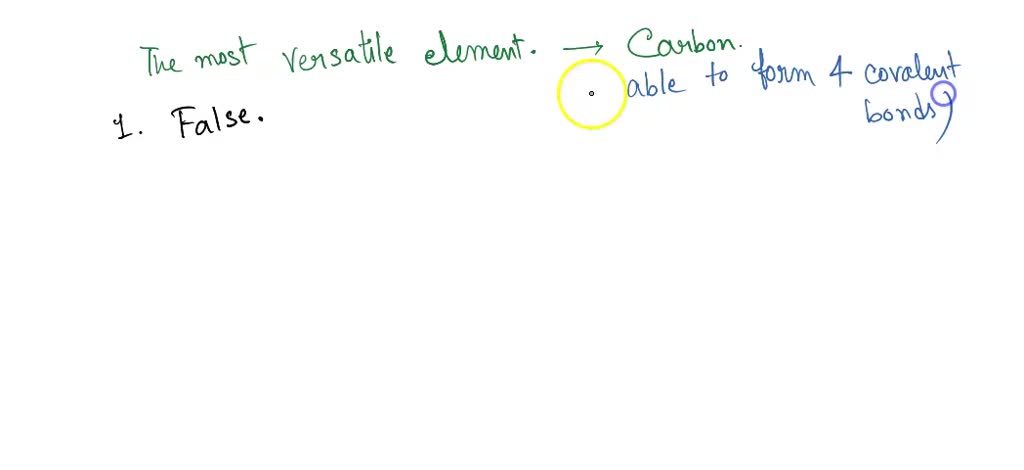 The most versatile element. → Carbon.
able to form 4 covalent
bonds)
1. False.